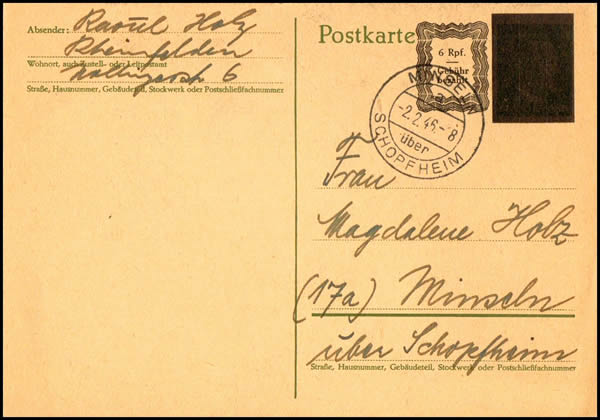 Absender: Raoul Holz
Rheinfelden
Wohnort, auch Zustell- oder Leitpostamt
Nollingerstr 6
Straße, Hausnummer, Gebäudeteil, Stockwerk oder Postschließfachnummer
Postkarte
6 Rpf.
Gebühr
bezahlt
MINSELN
a
-2.2.46.-8
über
SCHOPFHEIM
Frau
Magdalene Holz
(17a) Minseln
über Schopfheim
Straße, Hausnummer, Gebäudeteil, Stockwerk oder Postschließfachnummer